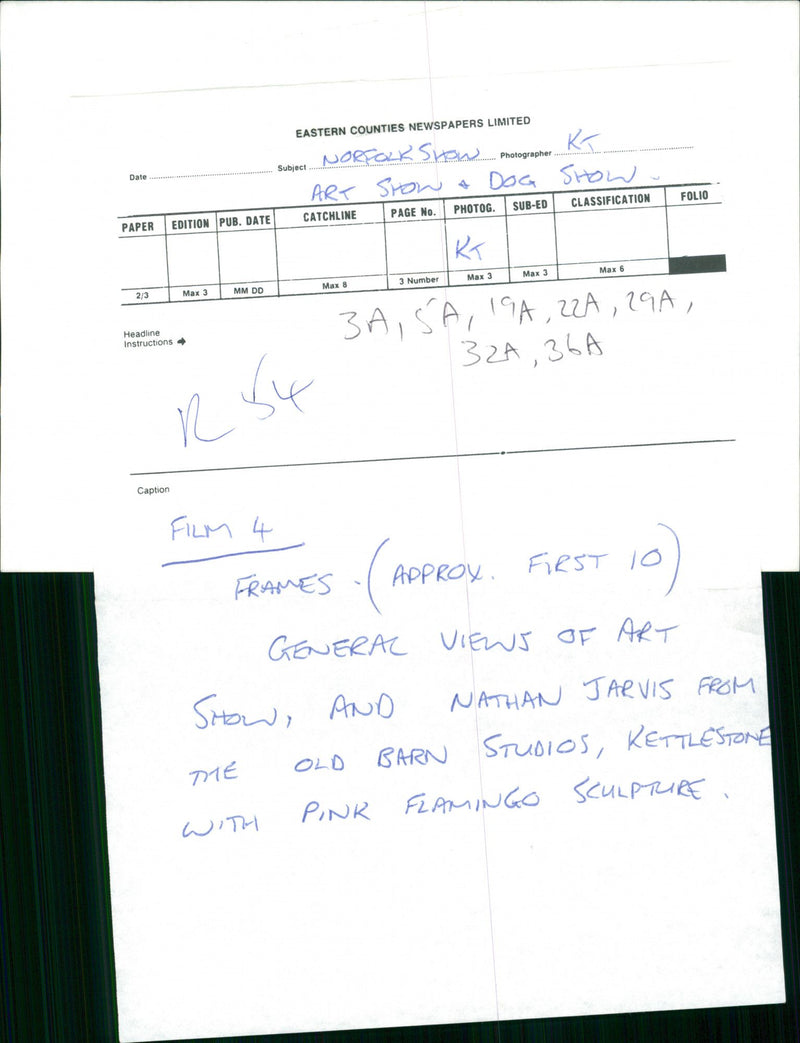 EASTERN COUNTIES NEWSPAPERS LIMITED
Date Subject NORFOLK SHOW Photographer KT
ART SHOW + DOG SHOW -
PAPER EDITION PUB. DATE CATCHLINE PAGE No. PHOTOG. SUB-ED CLASSIFICATION FOLIO
KT
2/3 Max 3 MM DD Max 8 3 Number Max 3 Max 3 Max 6
3A, 5A, 19A, 22A, 29A,
Headline
Instructions
32A, 36A
Caption
FILM 4
FRAMES - (APPROX. FIRST 10)
GENERAL VIEWS OF ART
SHOW, AND NATHAN JARVIS FROM
THE OLD BARN STUDIOS, KETTLESTONE
WITH PINK FLAMINGO SCULPTURE.